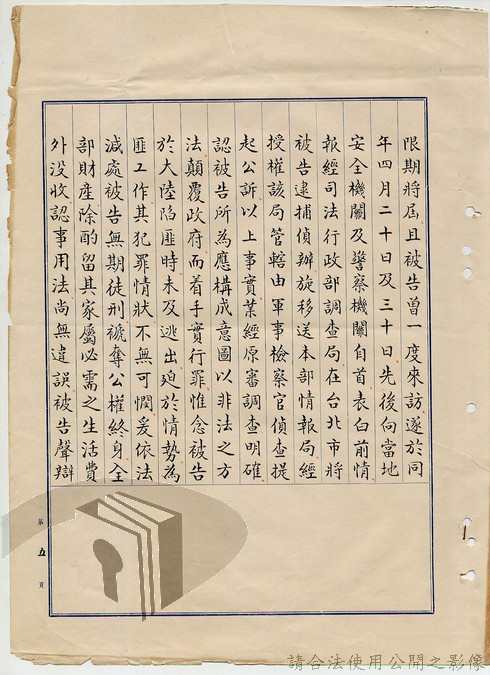 限期將屆且被告曾一度來訪遂於同
年四月二十日及三十日先後向當地
安全機關及警察機關自首表白前情
報經司法行政部調查局在台北市將
被告逮捕偵辦旋移送本部情報局經
授權該局管轄由軍事檢察官偵查提
起公訴以上事實業經原審調查明確
認被告所為應構成意圖以非法之方
法顛覆政府而着手實行罪惟念被告
於大陸陷匪時未及逃出迫於情勢為
匪工作其犯罪情狀不無可憫爰依法
減處被告無期徒刑褫奪公權終身全
部財產除酌留其家屬必需之生活費
外沒收認事用法尚無違誤被告聲辯
第五頁
請合法使用公開之影像